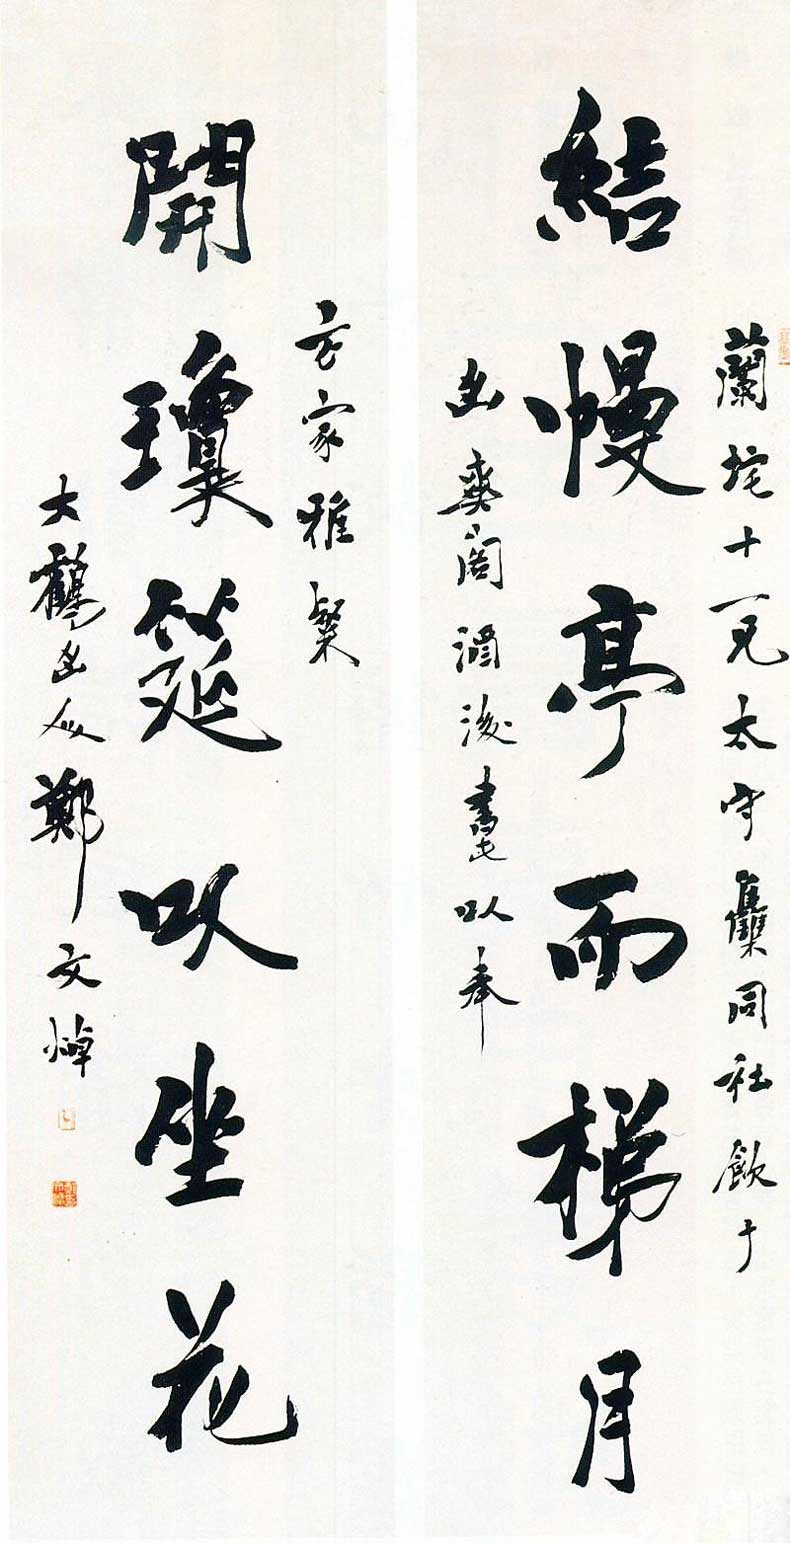 蘭垞十一兄太守集同社飲于
結幔亭而梯月
山爽閣酒後書此以奉
方家雅粲
開瓊筵以坐花
大鶴山人鄭文焯